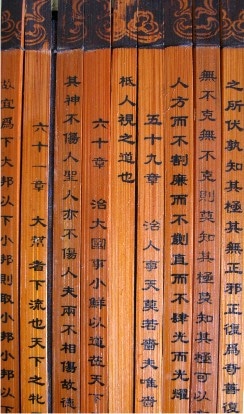 之所伏孰知其極其無正邪正復爲奇善復
無不克無不克則莫知其極莫知其極可以
人方而不割廉而不劌直而不肆光而不耀
五十九章 治人事天莫若嗇夫唯嗇
柢人視之道也
六十章 治大國若小鮮以道莅天下
其神不傷人聖人亦不傷人夫兩不相傷故德
六十一章 大邦者下流也天下之牝
故宜爲下大邦以下小邦則取小邦小邦